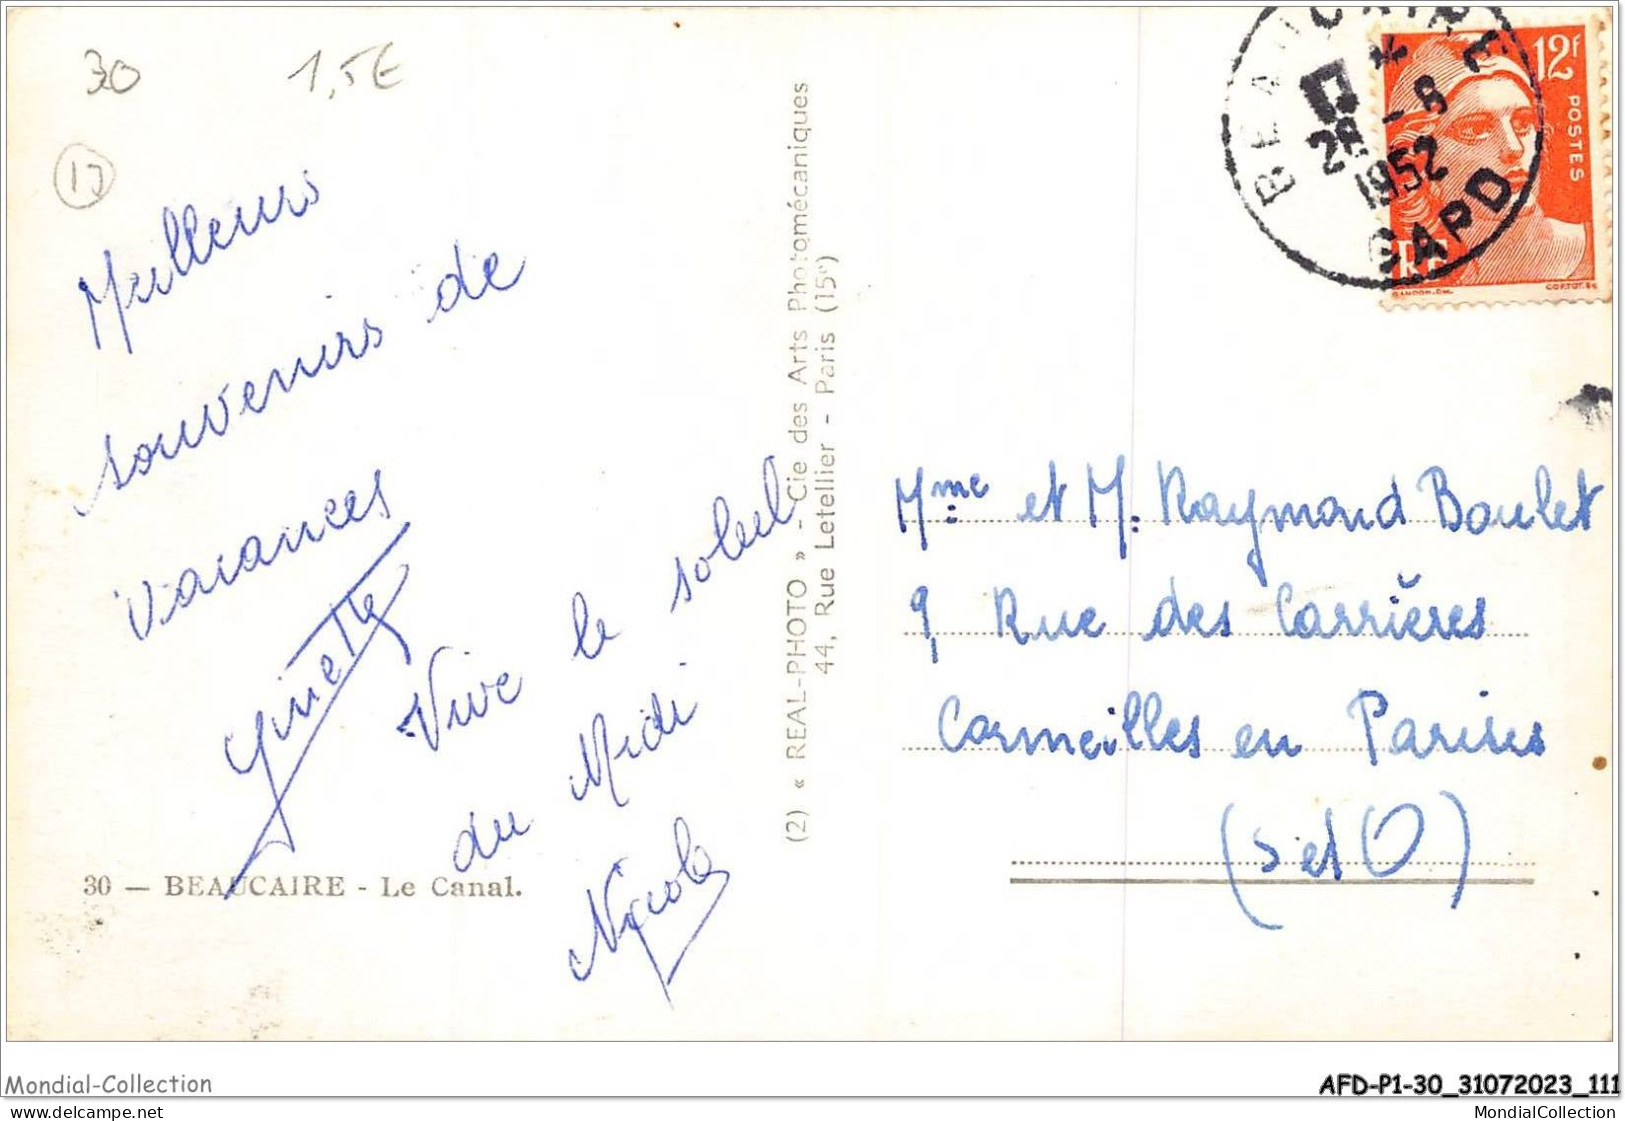 30 1,5€
13
Meilleurs
souvenirs de
vacances
Ginette
Vive le soleil
du Midi
Nicole
30 — BEAUCAIRE - Le Canal.
(2) « REAL-PHOTO » - Cie des Arts Photomécaniques
44, Rue Letellier - Paris (15e)
BEAUCAIRE
* 
-8
1952
GARD
12f
POSTES
RF
GANDON.DM.
CORTOT.SC
Mme et M. Raymond Boulet
9, Rue des Carrières
Cormeilles en Parisis
(S et O)
Mondial-Collection
delcampe.net
AFD-P1-30_31072023_111
MondialCollection